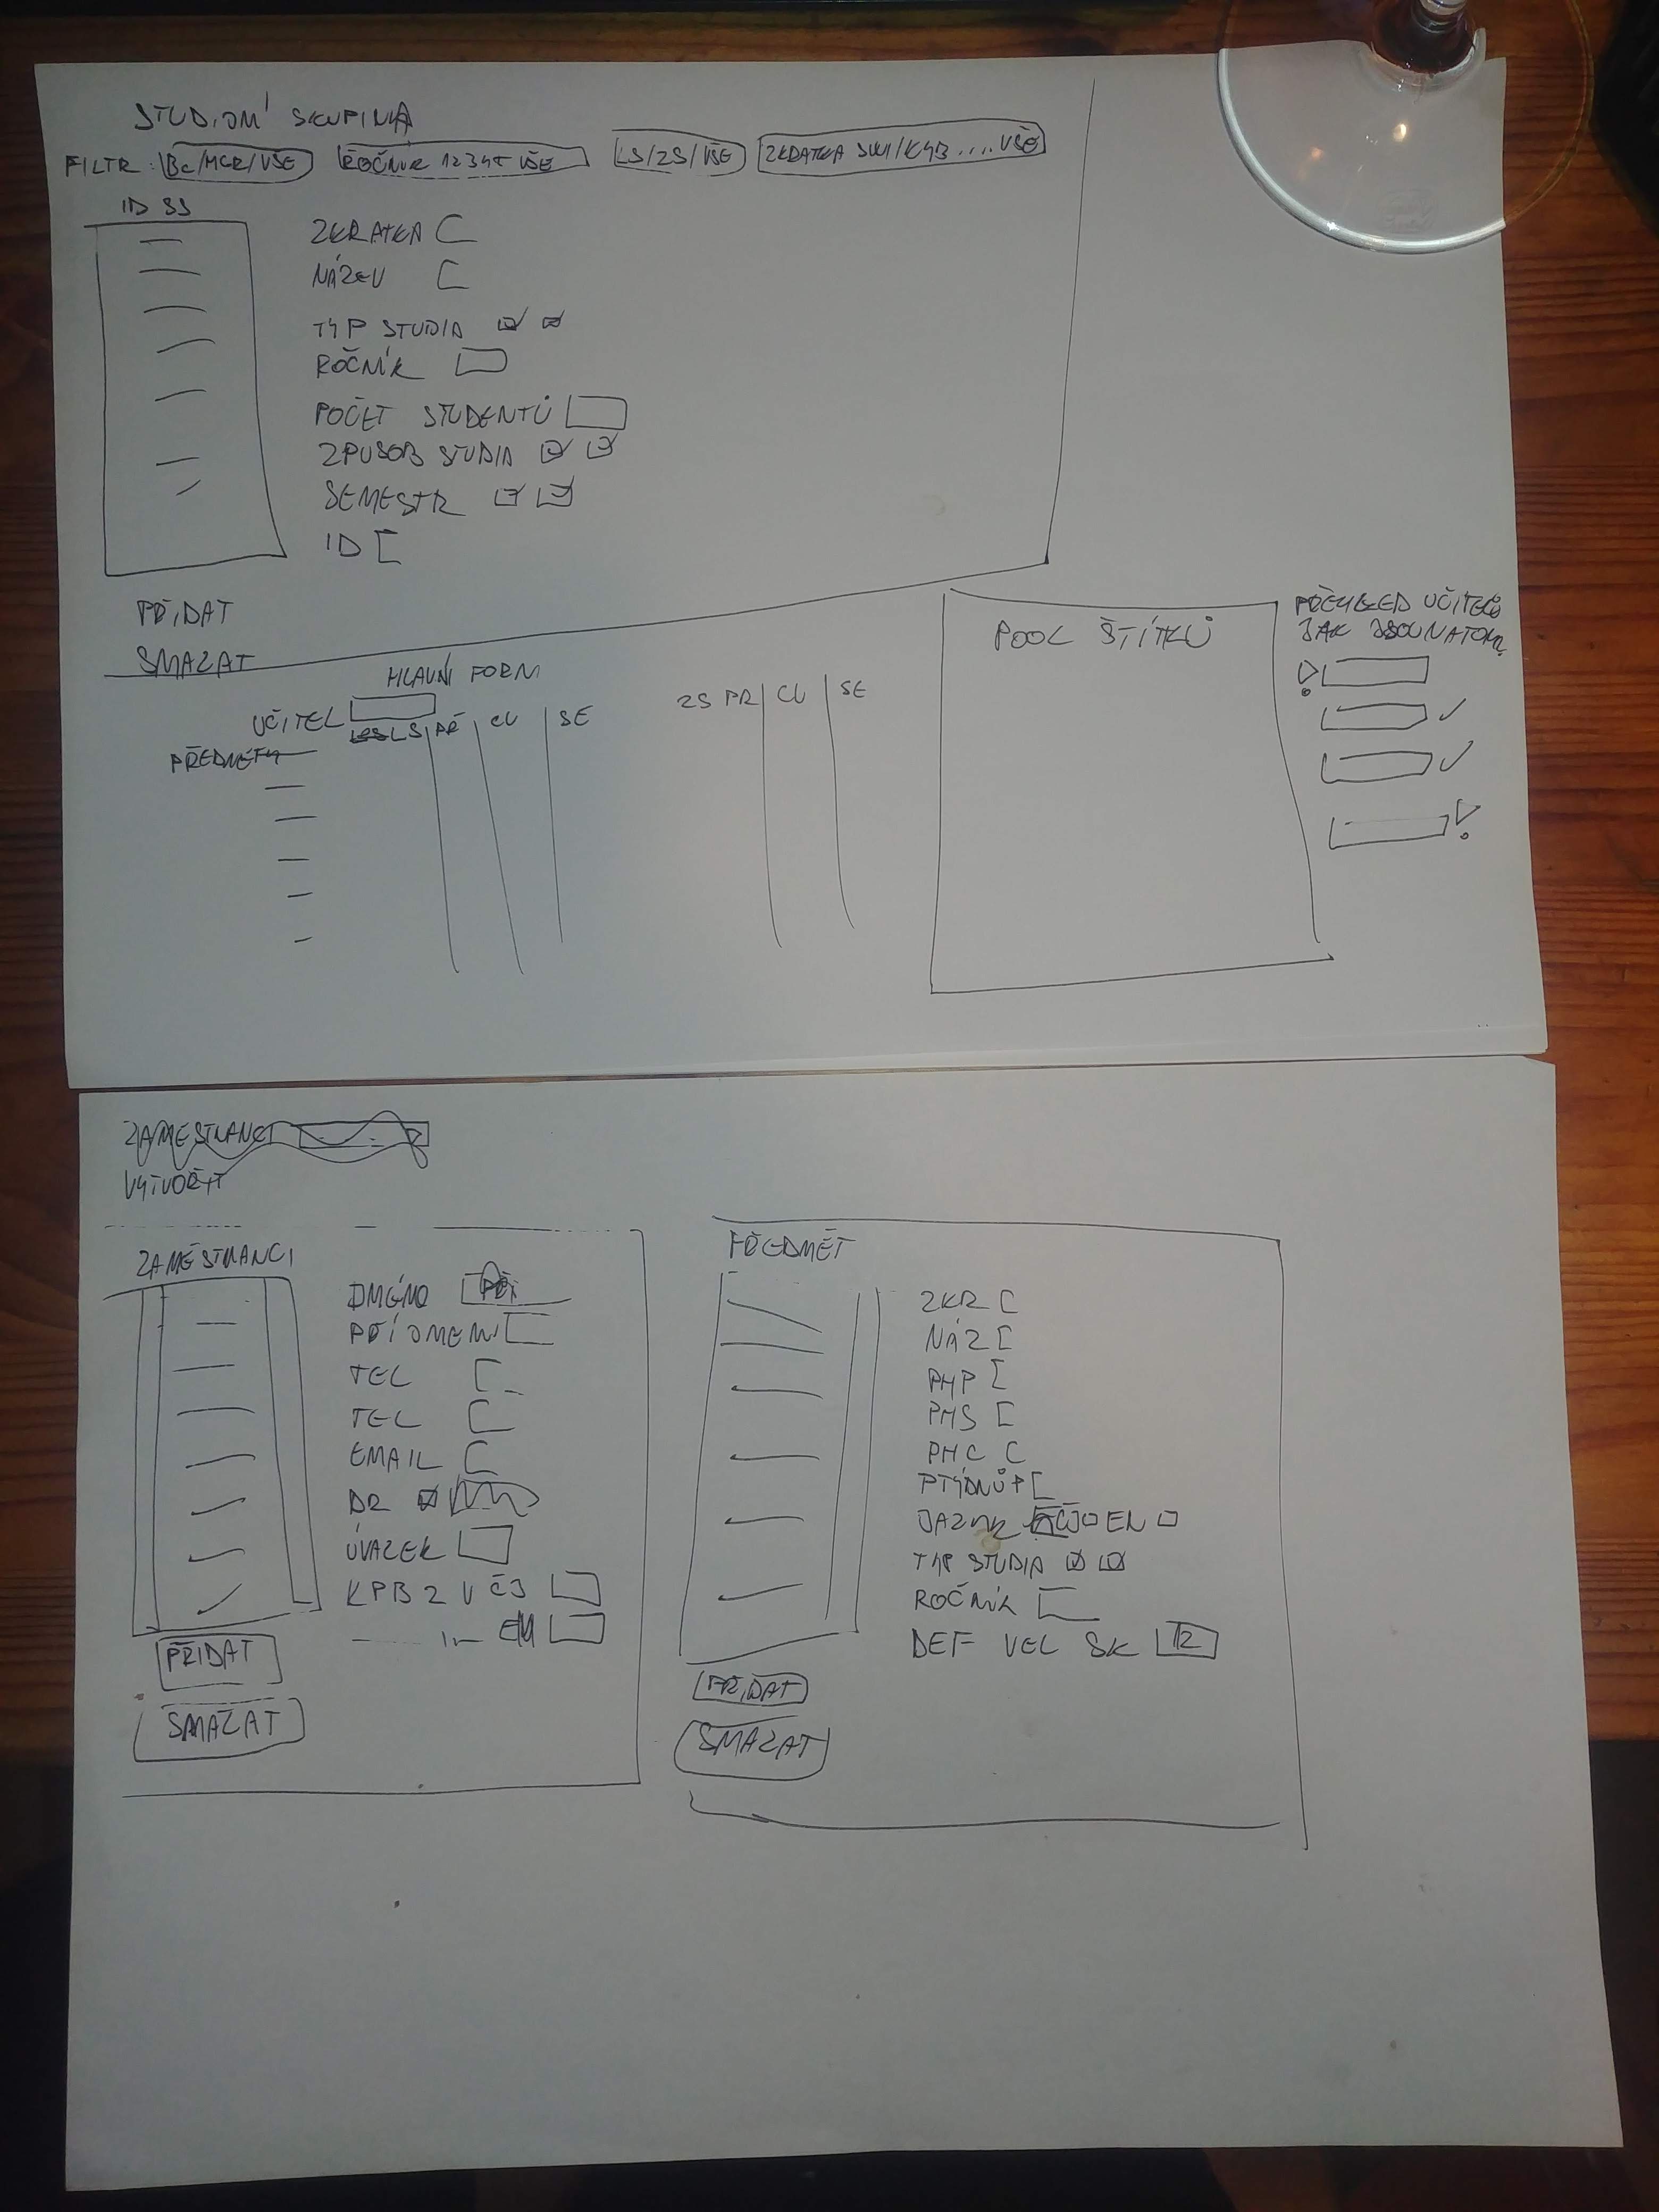 STUDIJNÍ SKUPINA
FILTR: Bc/MGR/VŠE ROČNÍK 12345 VŠE LS/ZS/VŠE ZKRATKA SWI/KYB....VŠE
ID SS
ZKRATKA
NÁZEV
TYP STUDIA
ROČNÍK
POČET STUDENTŮ
ZPUSOB STUDIA
SEMESTR
ID
PŘIDAT
SMAZAT
HLAVNÍ FORM
UČITEL
LS PŘ CV SE
ZS PR CV SE
PŘEDMĚTY
POOL ŠTÍTKŮ
PŘEHLED UČITELŮ
JAK JSOU NATOM
ZAMĚSTNANCI
VYTVOŘIT
ZAMĚSTNANCI
JMÉNO
PŘÍJMENÍ
TEL
TEL
EMAIL
DR
ÚVAZEK
KPBZ V ČJ
EN
PŘIDAT
SMAZAT
PŘEDMĚT
ZKR
NÁZ
PHP
PHS
PHC
PTÝDNŮ
JAZYK ČJ EN
TYP STUDIA
ROČNÍK
DEF VEL SK 12
PŘIDAT
SMAZAT